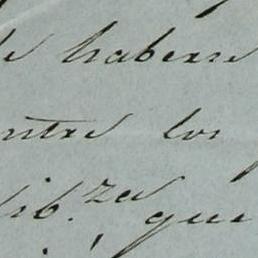 de haberse
entre los
lib.za que